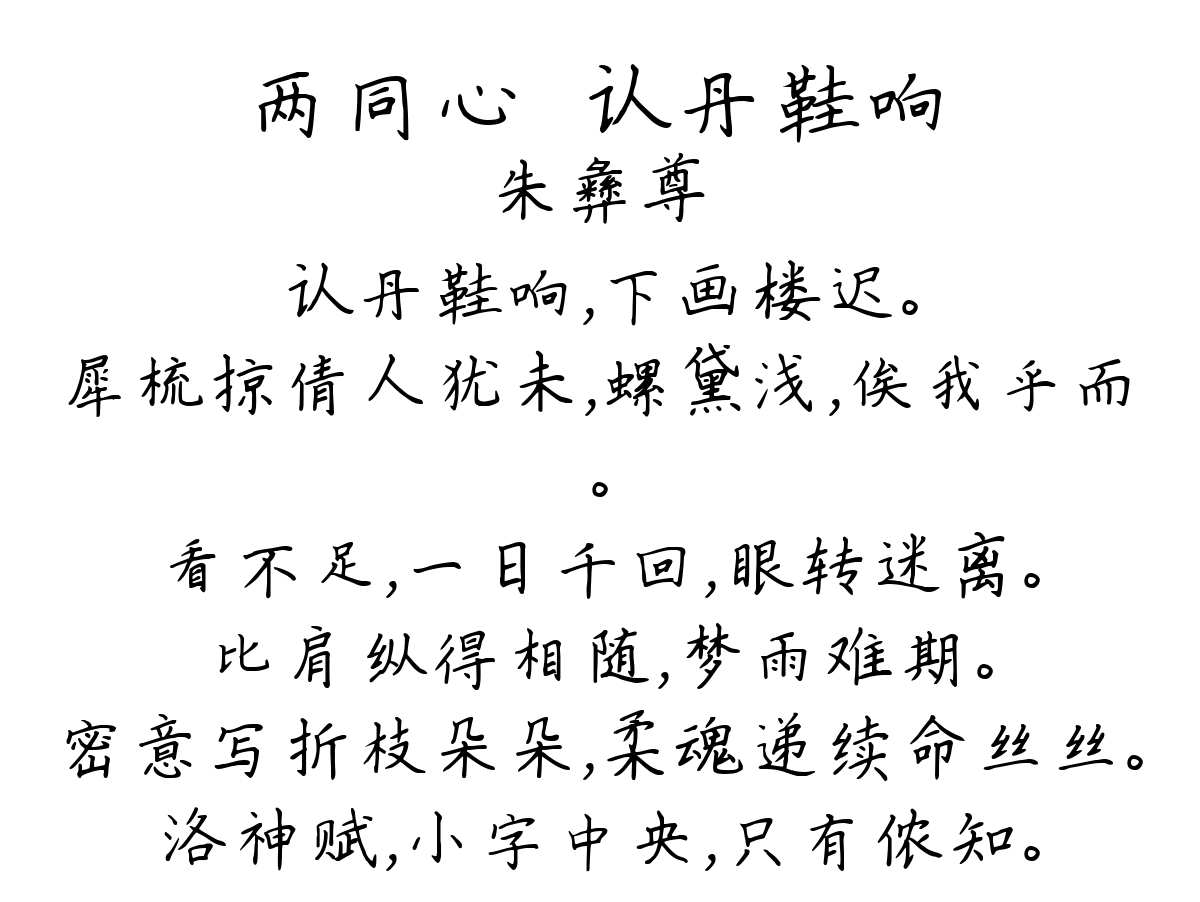 两同心 认丹鞋响
朱彝尊
认丹鞋响,下画楼迟。
犀梳掠倩人犹未,螺黛浅,俟我乎而
。
看不足,一日千回,眼转迷离。
比肩纵得相随,梦雨难期。
密意写折枝朵朵,柔魂递续命丝丝。
洛神赋,小字中央,只有侬知。